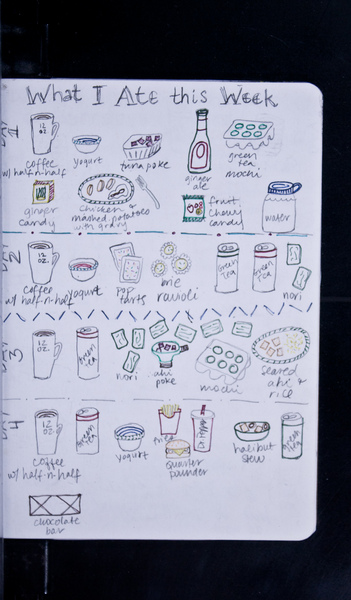 What I Ate this Week
DAY 1
12
OZ
coffee
w/ half-n-half
yogurt
tuna poke
ginger
ale
green
tea
mochi
ginger
candy
chicken &
mashed potatoes
with gravy
fruit
chewy
candy
water
DAY 2
12
OZ
coffee
w/ half-n-half
yogurt
pop
tarts
brie
ravioli
green
tea
green
tea
nori
DAY 3
12
OZ.
green
tea
nori
ahi
poke
mochi
seared
ahi &
rice
DAY 4
12
OZ
coffee
w/ half-n-half
green
tea
yogurt
fries
quarter
pounder
halibut
stew
green
tea
chocolate
bar